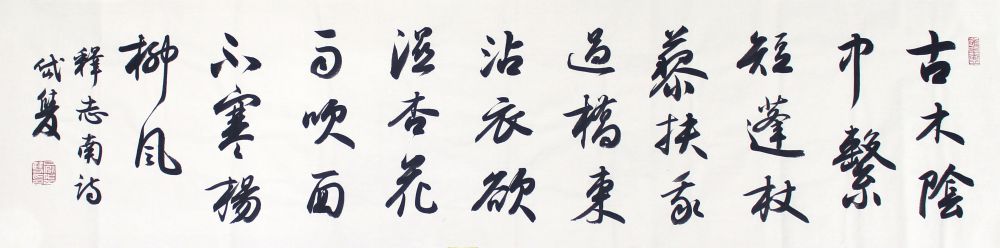 古木陰
中繫
短蓬杖
藜扶我
過橋東
沾衣欲
溼杏花
雨吹面
不寒楊
柳風
釋志南詩